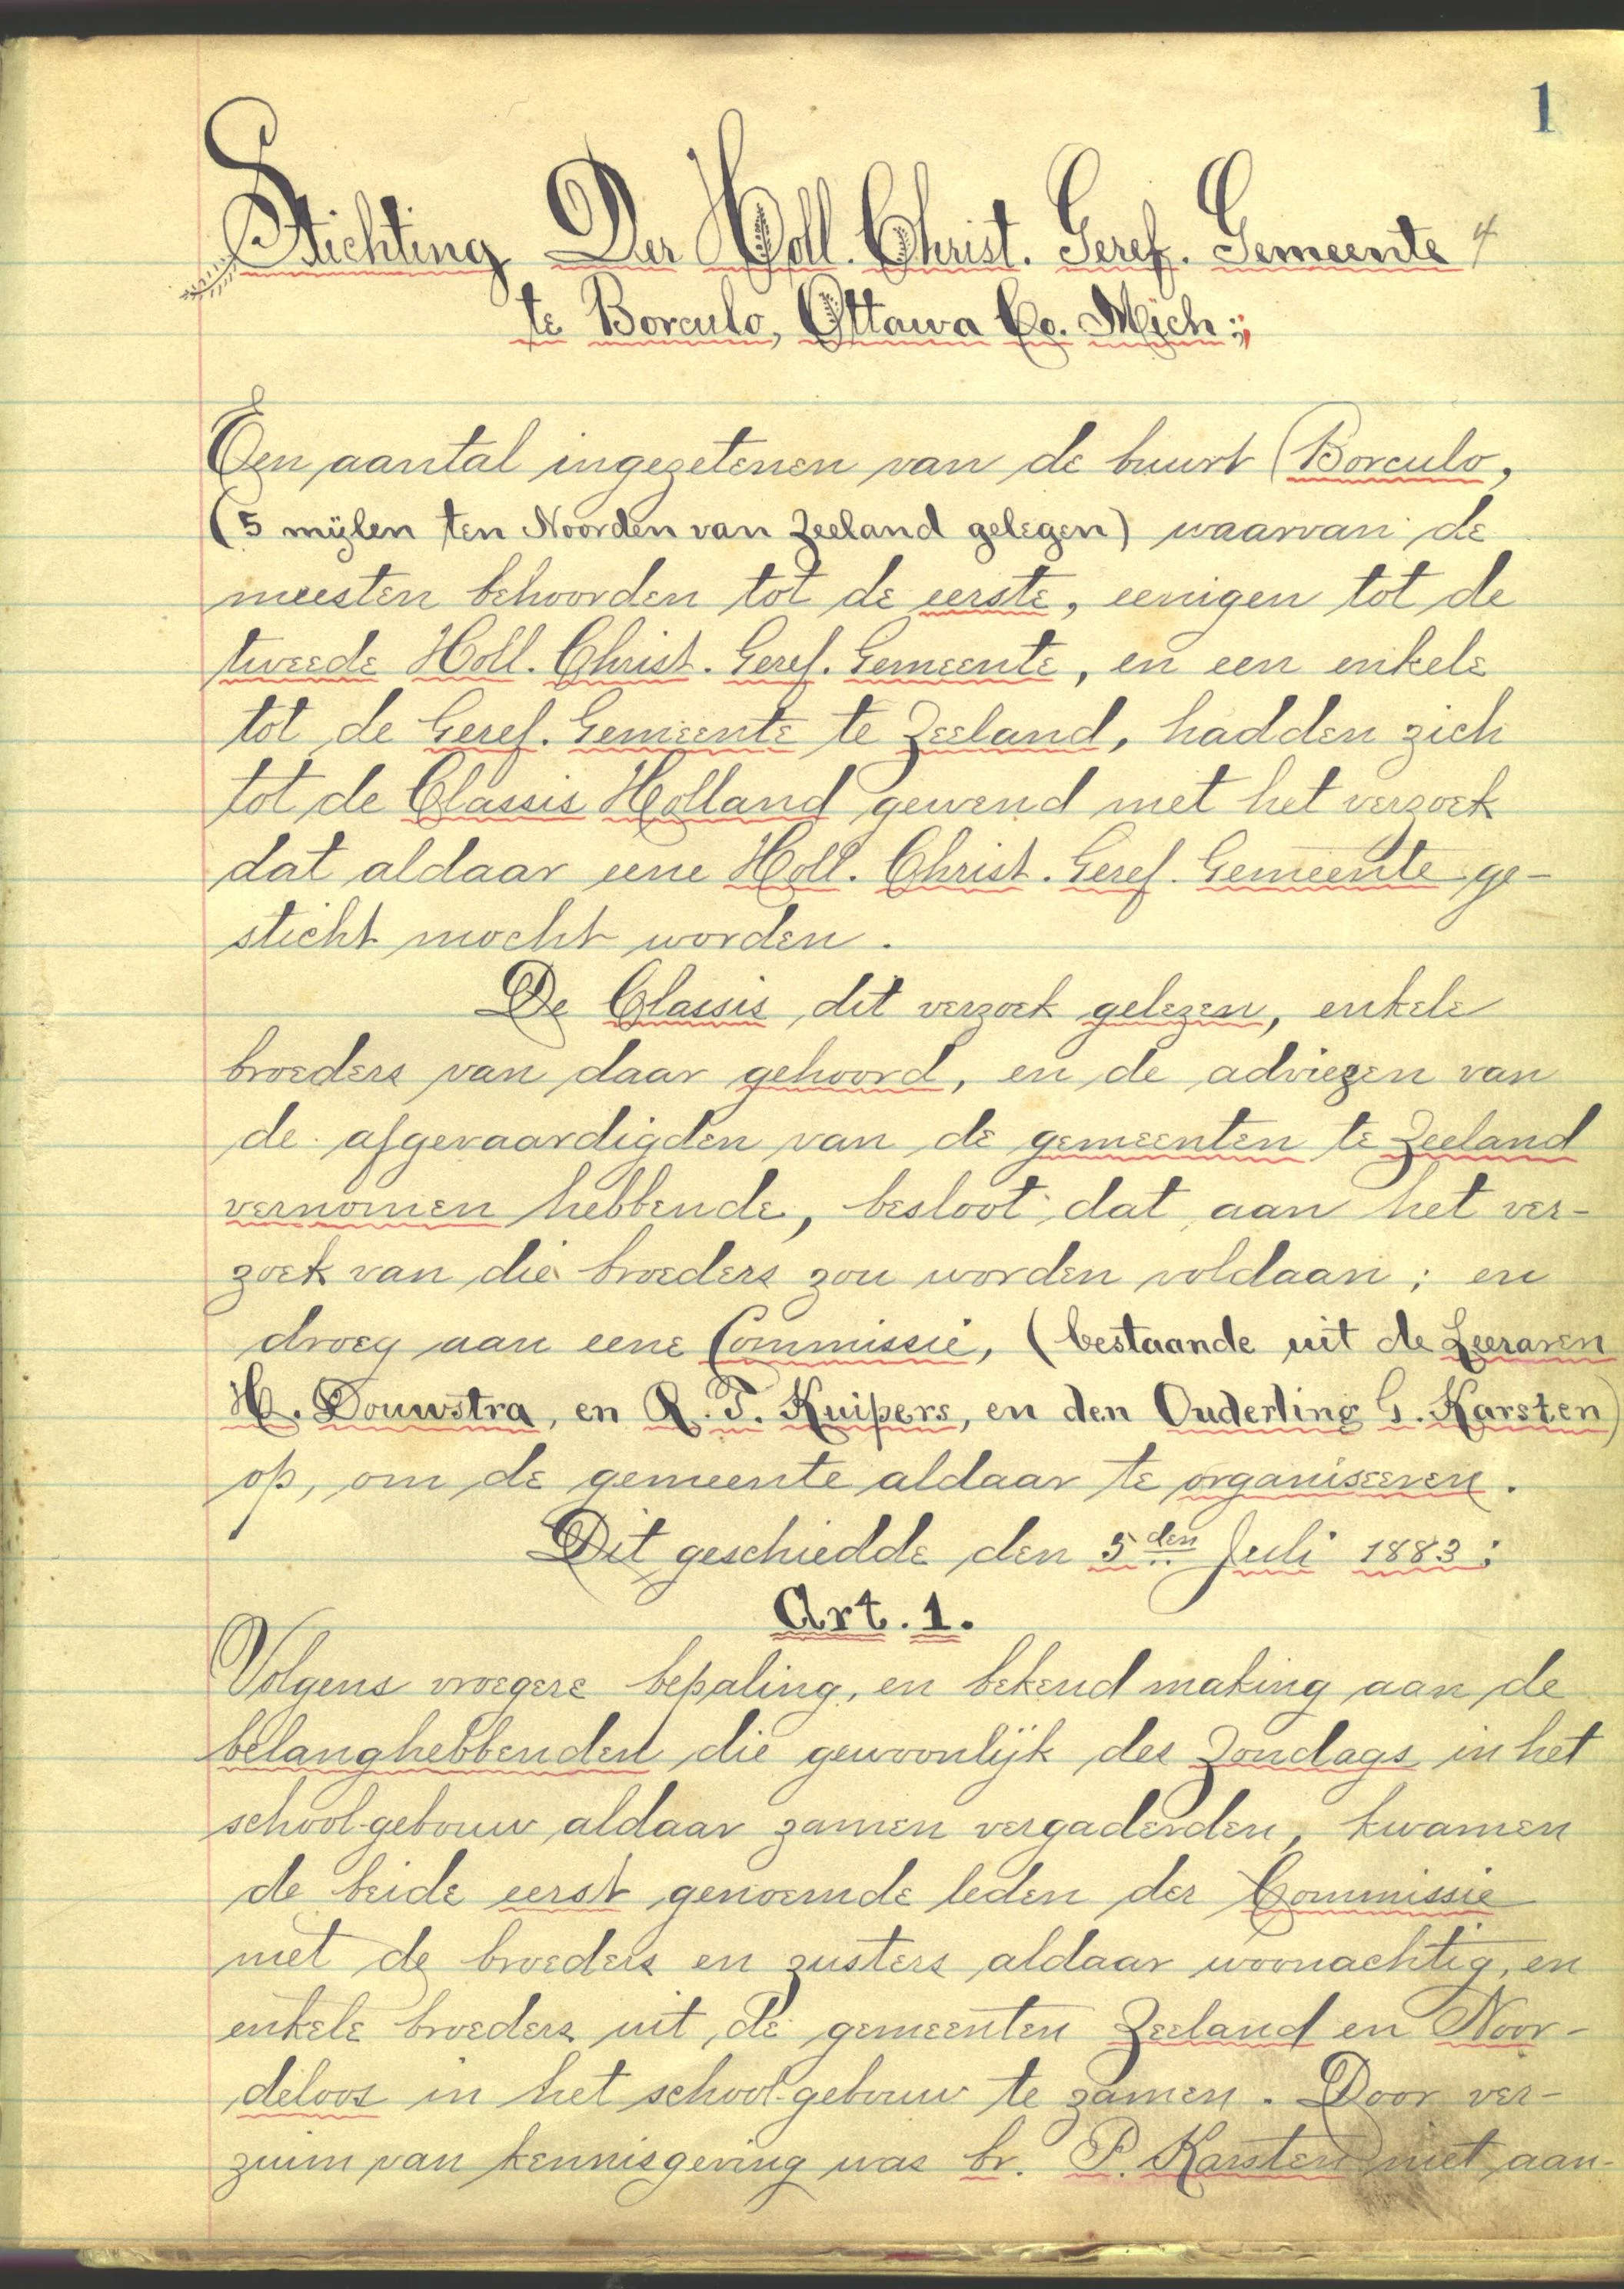 1
Stichting Der Holl. Christ. Geref. Gemeente
te Borculo, Ottawa Co. Mich:,
Een aantal ingezetenen van de buurt (Borculo,
(5 mijlen ten Noorden van Zeeland gelegen) waarvan de
meesten behoorden tot de eerste, eenigen tot de
tweede Holl. Christ. Geref. Gemeente, en een enkele
tot de Geref. Gemeente te Zeeland, hadden zich
tot de Classis Holland gewend met het verzoek
dat aldaar eene Holl. Christ. Geref. Gemeente ge-
sticht mocht worden.
De Classis dit verzoek gelezen, enkele
broeders van daar gehoord, en de adviezen van
de afgevaardigden van de gemeenten te Zeeland
vernomen hebbende, besloot dat aan het ver-
zoek van die broeders zou worden voldaan; en
droeg aan eene Commissie, (bestaande uit de Leeraren
H. Douwstra, en R. T. Kuipers, en den Ouderling G. Karsten)
op, om de gemeente aldaar te organiseeren.
Dit geschiedde den 5den Juli 1883;
Art. 1.
Volgens vroegere bepaling, en bekend making aan de
belanghebbenden die gewoonlijk des Zondags in het
school-gebouw aldaar zamen vergaderden, kwamen
de beide eerst genoemde leden der Commissie
met de broeders en zusters aldaar woonachtig, en
enkele broeders uit de gemeenten Zeeland en Noor-
deloos in het school-gebouw te zamen. Door ver-
zuim van kennisgeving was br. P. Karsten niet aan-